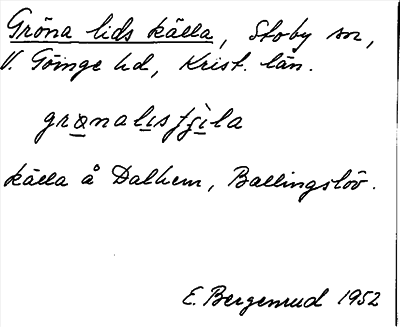 Gröna lids källa, Stoby sn,
V. Göinge hd, Krist. län.
källa å Dalhem, Ballingslöv.
E. Bergenrud 1952